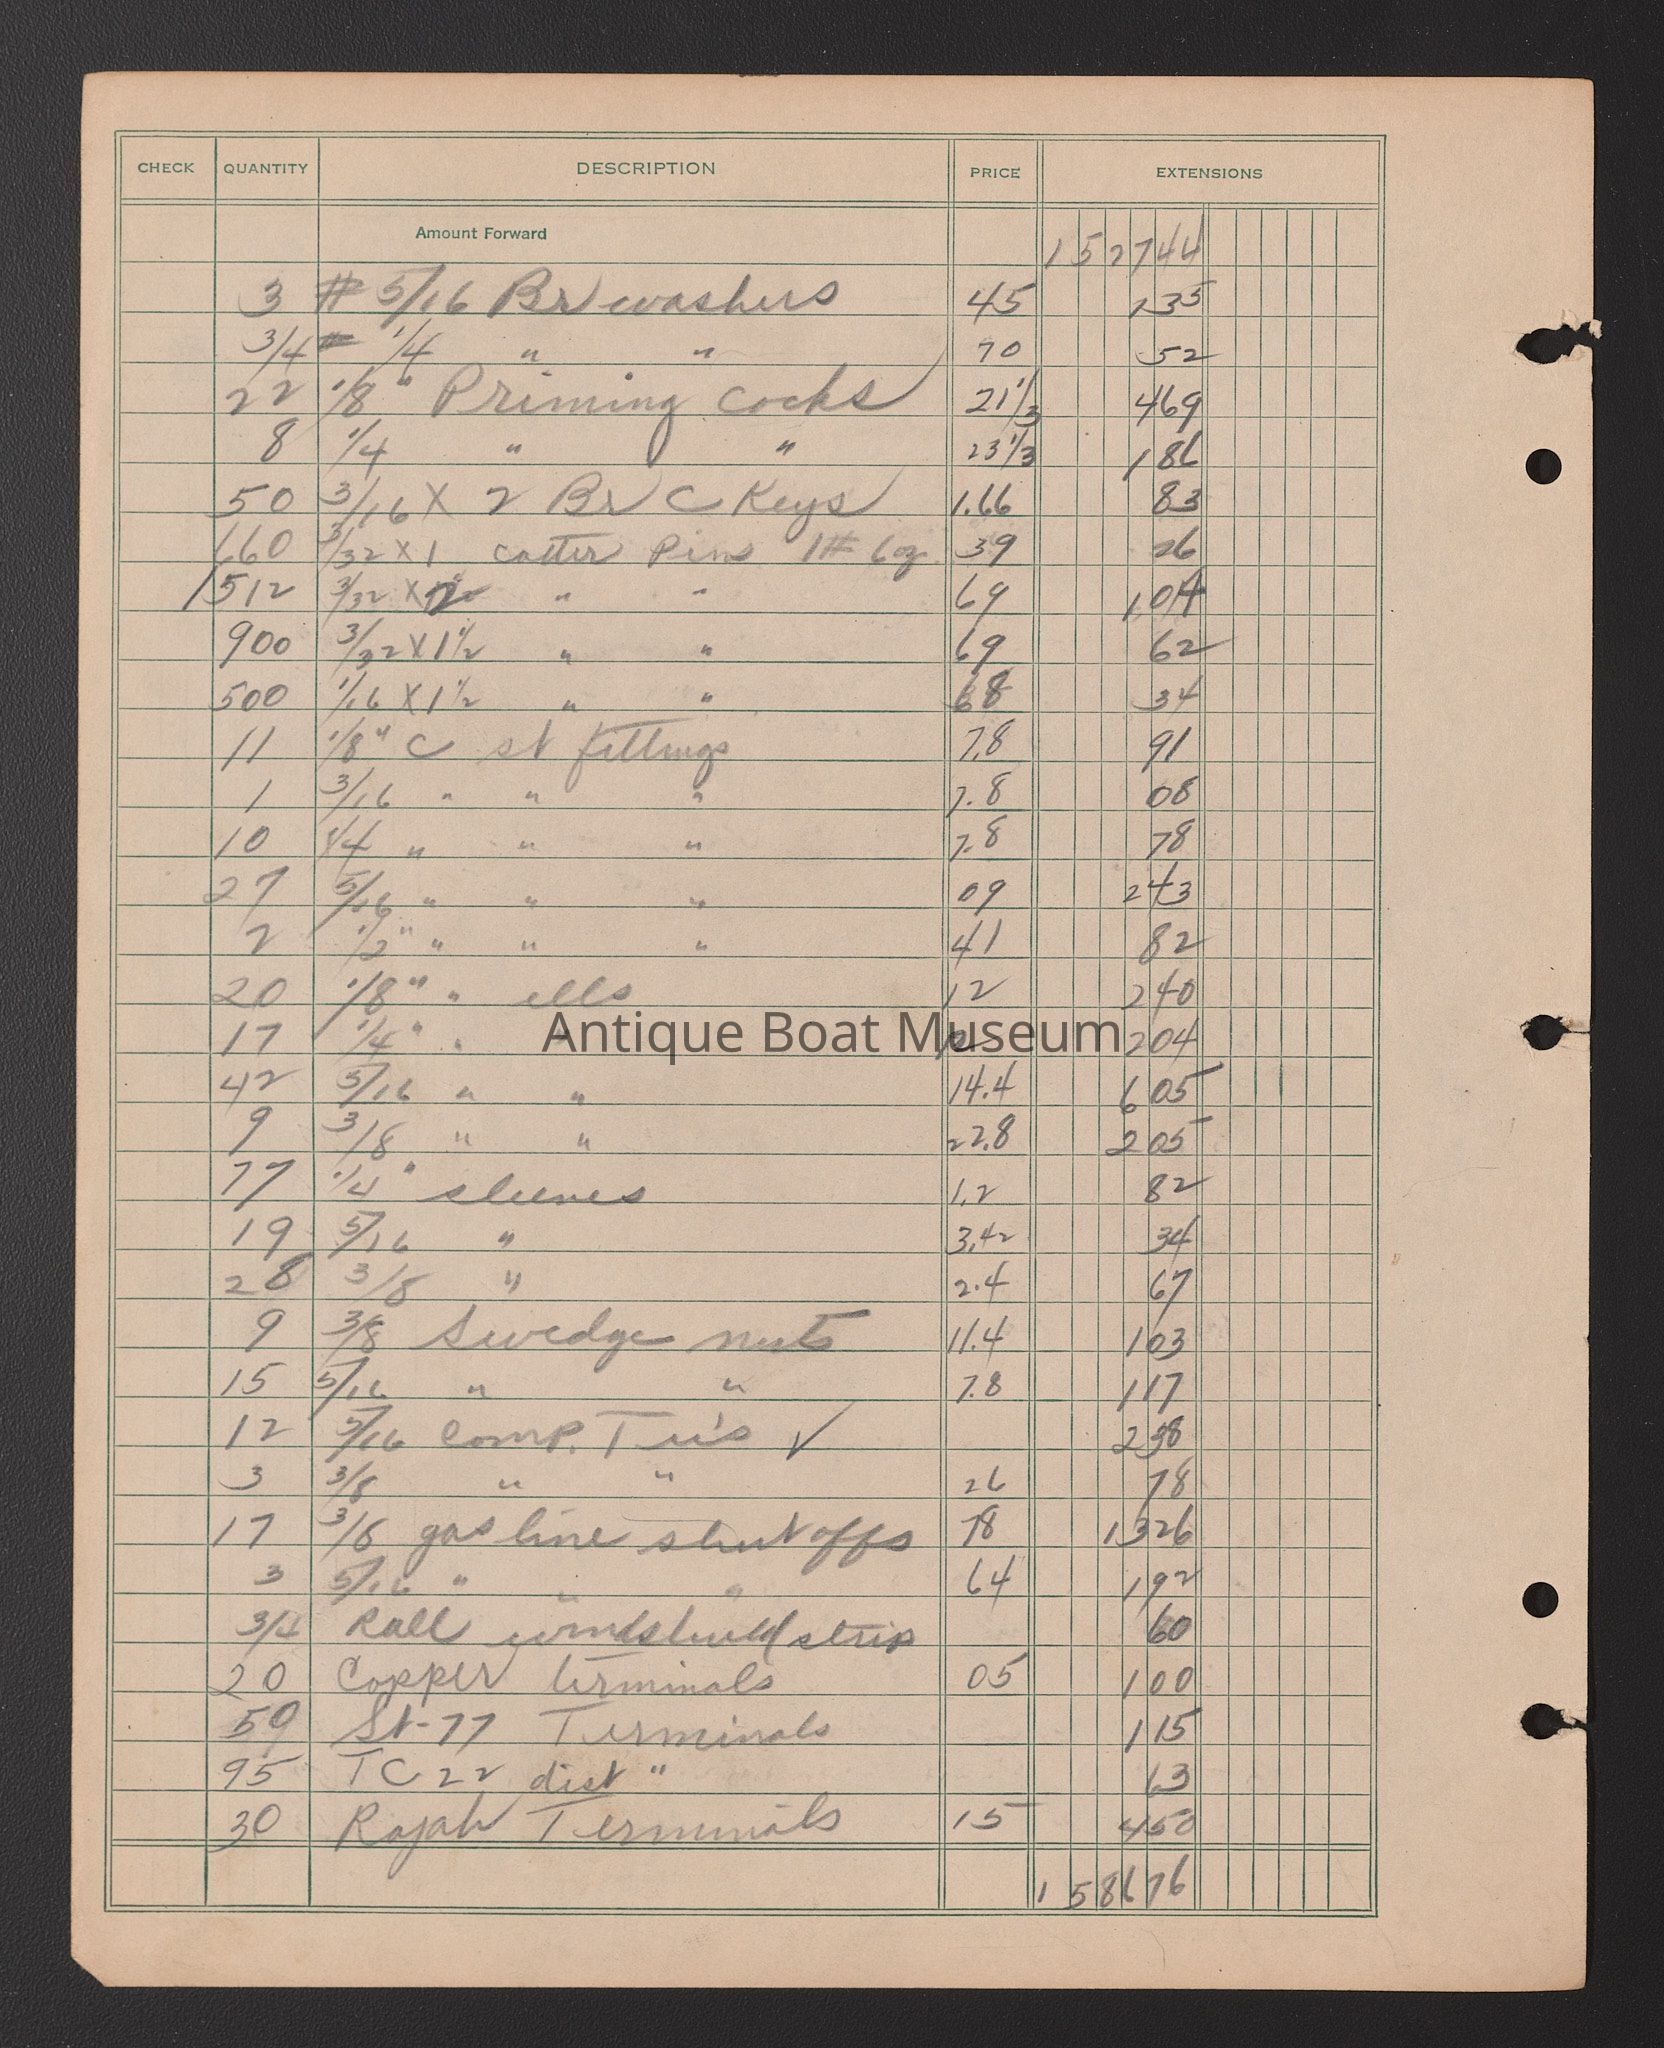 CHECK QUANTITY DESCRIPTION PRICE EXTENSIONS
Amount Forward 1 5 2 7 4 4
3 # 5/16 Br washers 45 1 35
3/4 # 1/4 " " 70 52
22 1/8" Priming cocks 21 1/3 4 69
8 1/4 " " 23 1/3 1 86
50 3/16 X 2 Br C Keys 1.66 83
660 3/32 X 1 cotter Pins 1# 6oz 39 26
1512 3/32 X " " 69 1.04
900 3/32 X 1 1/2 " " 69 62
500 1/16 X 1 1/2 " " 68 34
11 1/8" C st fittings 7.8 91
1 3/16 " " " 7.8 08
10 1/4 " " " 7.8 78
27 5/16 " " " 09 2 43
2 1/2" " " " 41 82
20 1/8" " ells 12 2 40
17 1/4" " " 12 2 04
42 5/16 " " 14.4 6 05
9 3/8 " " 22.8 2 05
77 1/4" sleeves 1.2 82
19 5/16 " 3.42 34
28 3/8 " 2.4 67
9 3/8 Swedge nuts 11.4 1 03
15 5/16 " " 7.8 1 17
12 5/16 Comp. Tee's ✓ 2 58
3 3/8 " " 26 78
17 3/8 gas line shut offs 78 13 26
3 5/16 " " " 64 1 92
3/4 Roll windshield strip 60
20 Copper terminals 05 1 00
59 St-77 Terminals 1 15
95 TC 22 dist " 63
30 Rajah Terminals 15 4 50
1 5 8 6 7 6
Antique Boat Museum